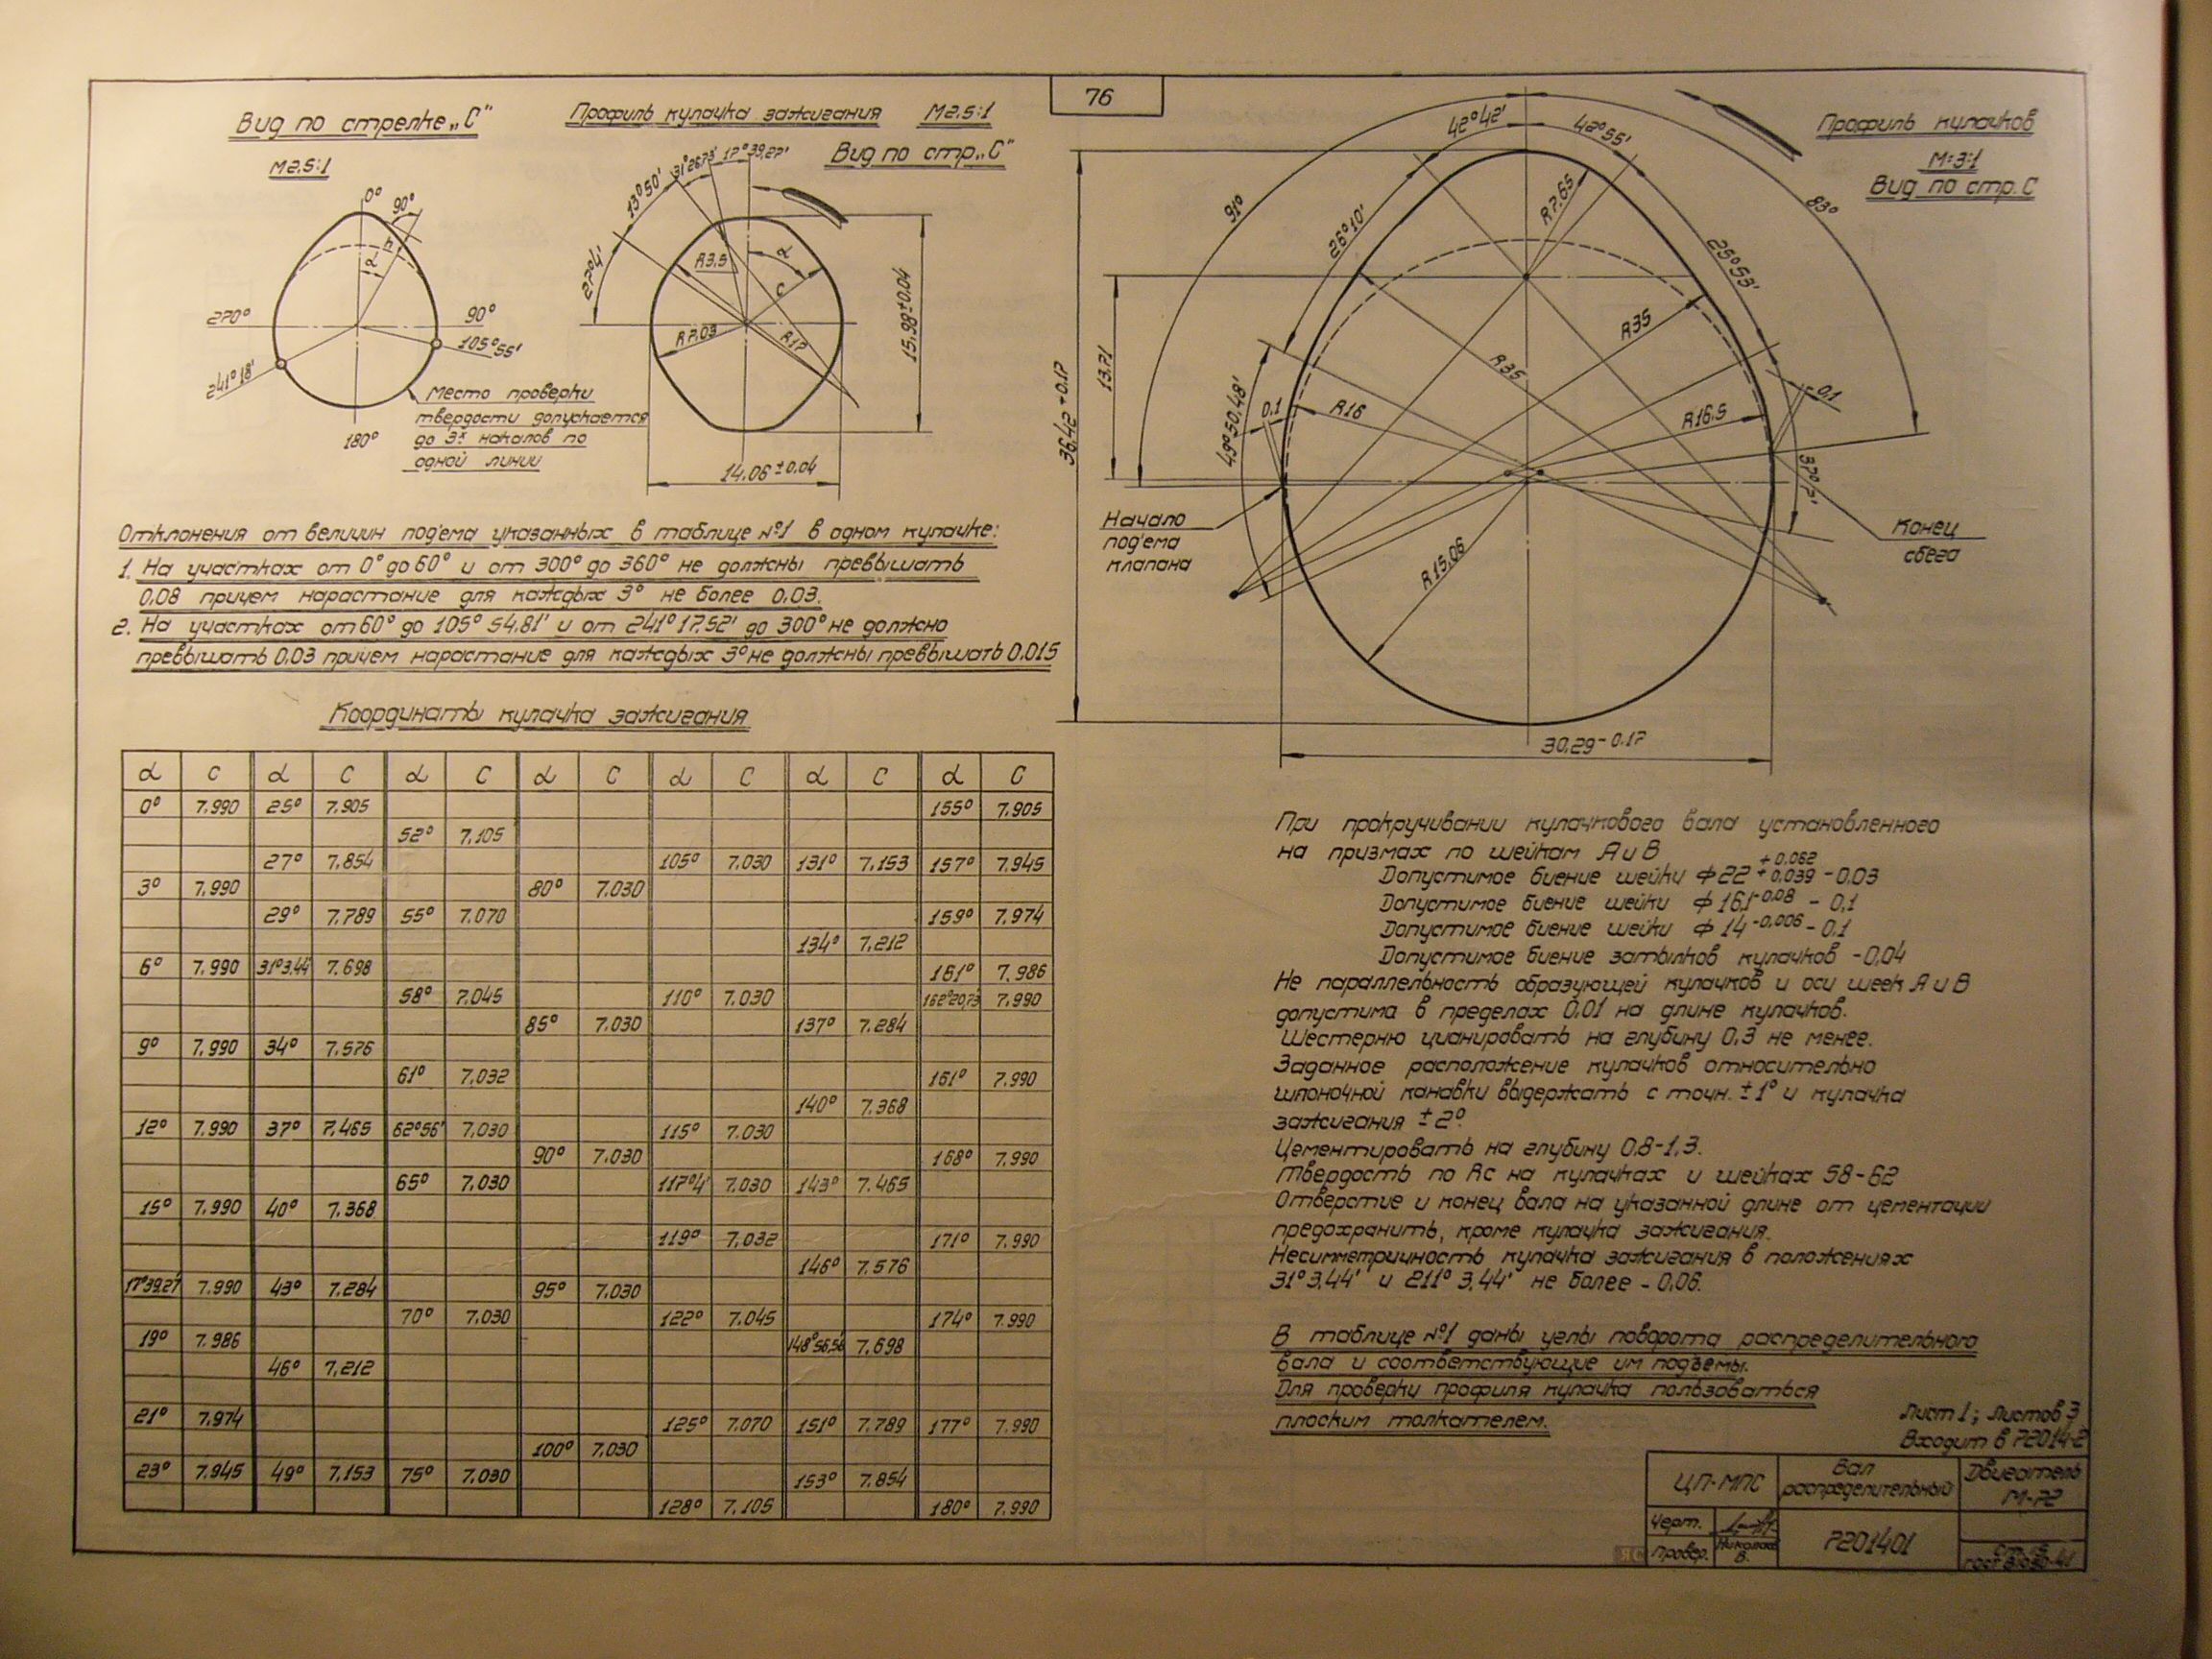 76
Вид по стрелке „С"
М2,5:1
0°
90°
h
α
270°
90°
105°55'
241°18'
180°
Место проверки
твердости допускается
до 3х накалов по
одной линии
Профиль кулачка зажигания М2,5:1
Вид по стр „С"
27°4'
13°50'
31°26,73'
17°39,27'
R3,5
α
C
R7,03
R17
15,98±0.04
14.06±0.04
Профиль кулачков
М:3:1
Вид по стр. С
42°42'
42°55'
91°
83°
26°10'
25°53'
R7.65
R35
R35
36.42 +0.17
13.71
49°50,48'
0.1
R16
R16.5
0.1
37°7'
R15.06
30,29-0.17
Начало
под'ема
клапана
Конец
сбега
Отклонения от величин под'ема указанных в таблице №1 в одном кулачке:
1. На участках от 0° до 60° и от 300° до 360° не должны превышать
0,08 причем нарастание для каждых 3° не более 0,03.
2. На участках от 60° до 105° 54,81' и от 241° 17,52' до 300° не должно
превышать 0.03 причем нарастание для каждых 3° не должны превышать 0.015
Координаты кулачка зажигания
α C α C α C α C α C α C α C
0° 7.990 25° 7.905 155° 7.905
52° 7.105
27° 7.854 105° 7.030 131° 7.153 157° 7.945
3° 7.990 80° 7.030
29° 7.789 55° 7.070 159° 7.974
134° 7.212
6° 7.990 31°3.44' 7.698 161° 7.986
58° 7.045 110° 7.030 162°20,73' 7.990
85° 7.030 137° 7.284
9° 7.990 34° 7.576
61° 7.032 161° 7.990
140° 7.368
12° 7.990 37° 7.465 62°56' 7.030 115° 7.030
90° 7.030 168° 7.990
65° 7.030 117°4' 7.030 143° 7.465
15° 7.990 40° 7.368
119° 7.032 171° 7.990
146° 7.576
17°39.27' 7.990 43° 7.284 95° 7.030
70° 7.030 122° 7.045 174° 7.990
19° 7.986 148°56,56' 7.698
46° 7.212
21° 7.974 125° 7.070 151° 7.789 177° 7.990
100° 7.030
23° 7.945 49° 7.153 75° 7.030 153° 7.854
128° 7.105 180° 7.990
При прокручивании кулачкового вала установленного
на призмах по шейкам А и В
Допустимое биение шейки ф22 +0.062 +0.039 - 0.03
Допустимое биение шейки ф 16,1-0.08 - 0,1
Допустимое биение шейки ф 14-0,006 - 0.1
Допустимое биение затылков кулачков - 0,04
Не параллельность образующей кулачков и оси шеек А и В
допустима в пределах 0,01 на длине кулачков.
Шестерню цианировать на глубину 0,3 не менее.
Заданное расположение кулачков относительно
шпоночной канавки выдержать с точн. ±1° и кулачка
зажигания ±2°.
Цементировать на глубину 0.8-1,3.
Твердость по Rc на кулачках и шейках 58-62
Отверстие и конец вала на указанной длине от цементации
предохранить, кроме кулачка зажигания.
Несимметричность кулачка зажигания в положениях
31° 3,44' и 211° 3,44' не более - 0,06.
В таблице №1 даны углы поворота распределительного
вала и соответствующие им подъемы.
Для проверки профиля кулачка пользоваться
плоским толкателем.
Лист 1; Листов 3
Входит в 72014-2
ЦП-МПС
Вал
распределительный
Двигатель
М-72
Черт.
Провер.
7201401
ЯС